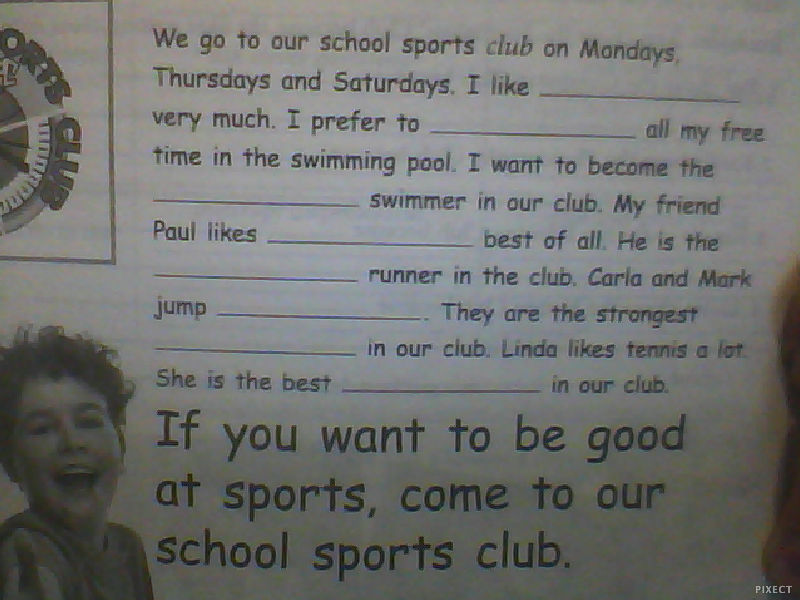 SPORTS CLUB
We go to our school sports club on Mondays,
Thursdays and Saturdays. I like ____________
very much. I prefer to ____________ all my free
time in the swimming pool. I want to become the
____________ swimmer in our club. My friend
Paul likes ____________ best of all. He is the
____________ runner in the club. Carla and Mark
jump ____________. They are the strongest
____________ in our club. Linda likes tennis a lot.
She is the best ____________ in our club.
If you want to be good
at sports, come to our
school sports club.
PIXECT